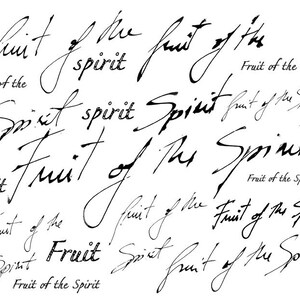 Fruit of the fruit of the
spirit
Fruit of the S
of the
Spirit spirit Spirit fruit of the S
Fruit of the Spiri
it
Fruit of the Spirit
fruit of the Fruit of the Sp
fruit of the
Fruit Spirit
Spirit fruit of the S
Fruit of the Spirit